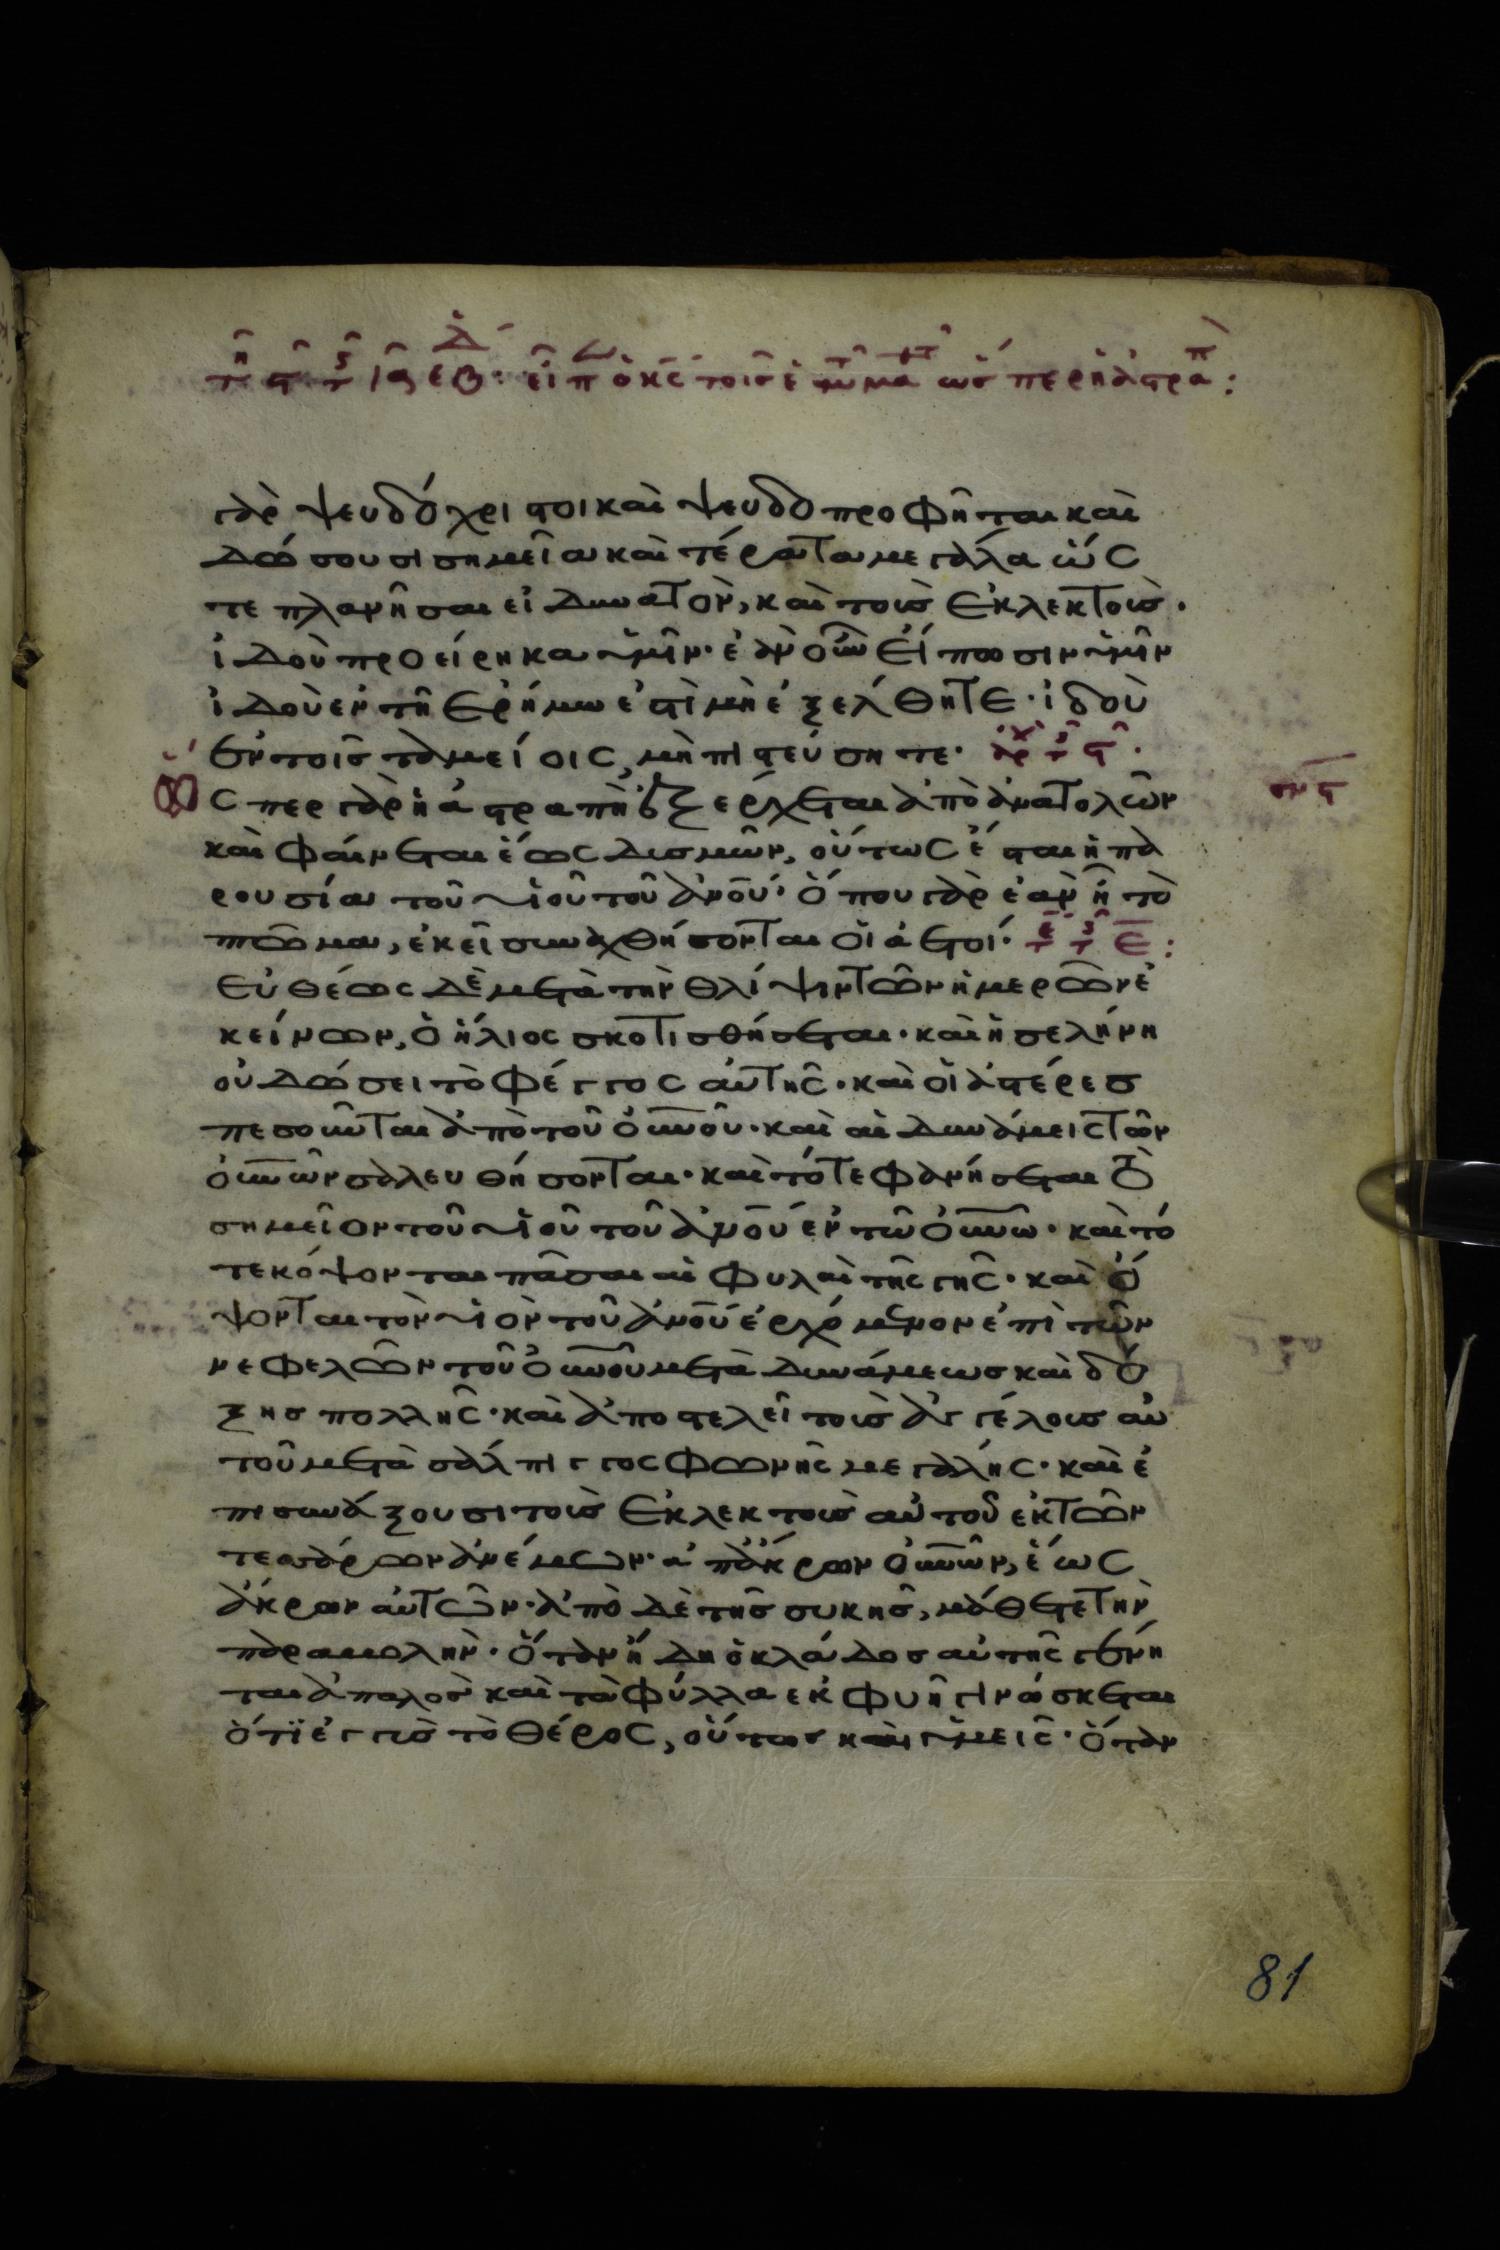 γὰρ ψευδόχριστοι και ψευδοπροφῆται καὶ
δώσουσι σημεῖα καὶ τέρατα μεγάλα ὥς
τε πλανῆσαι εἰ δυνατὸν, καὶ τοὺς ἐκλεκτούς.
ἰδοὺ προείρηκα ὑμῖν. ἐὰν οὖν εἴπωσιν ὑμῖν
ἰδοὺ ἐν τῆ ἐρήμω ἐστὶ μὴ ἐξέλθητε. ἰδοὺ
ἐν τοῖς ταμείοις, μὴ πιστεύσητε.
ὥσπερ γὰρ ἡ ἀστραπὴ ἐξέρχεται ἀπὸ ἀνατολῶν
καὶ φαίνεται ἕως δυσμῶν, οὕτως ἔσται ἡ πα
ρουσία τοῦ υἱοῦ τοῦ ἀνου. ὅπου γὰρ ἐὰν ῆ τὸ
πτῶμα, ἐκεῖ συναχθήσονται οἱ ἀετοί.
Εὐθέως δὲ μετὰ τὴν θλίψιν τῶν ἡμερῶν ἐ
κείνων, ὁ ἥλιος σκοτισθήσεται. καὶ ἡ σελήνη
οὐ δώσει τὸ φέγγος αὐτῆς. καὶ οἱ ἀστέρες
πεσοῦνται ἀπὸ τοῦ οὐνοῦ. καὶ αἱ δυνάμεις τῶν
οὐνῶν σαλευθήσονται. καὶ τότε φανήσεται τὸ
σημεῖον τοῦ υἱοῦ τοῦ ἀνου ἐν τῶ οὐνῶ. καὶ τό
τε κόψονται πᾶσαι αἱ φυλαὶ τῆς γῆς. καὶ ὄ
ψονται τὸν υἱὸν τοῦ ἀνου ἐρχόμενον ἐπὶ τῶν
νεφελῶν τοῦ οὐνοῦ μετὰ δυνάμεως καὶ δό
ξης πολλῆς. καὶ ἀποστελεῖ τοὺς ἀγγέλους αὐ
τοῦ μετὰ σάλπιγγος φωνῆς μεγάλης. καὶ ἐ
πισυνάξουσι τοὺς ἐκλεκτοὺς αὐτοῦ ἐκ τῶν
τεσσάρων ἀνέμων. ἀπ ἄκρων οὐνῶν, ἕως
ἄκρων αὐτῶν. ἀπὸ δὲ τῆς συκῆς, μάθετε τὴν
παραβολήν. ὅταν ἤδη ὁ κλάδος αὐτῆς γένη
ται ἁπαλὸς καὶ τὰ φύλλα ἐκφυῆ γινώσκεται
ὅτι ἐγγὺς τὸ θέρος, οὕτως καὶ ὑμεῖς. ὅταν
81